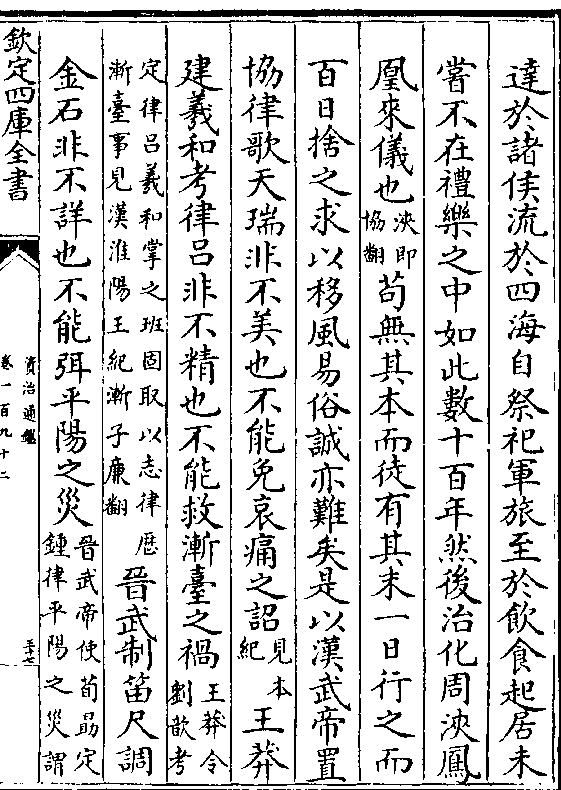 達於諸侯流於四海自祭祀軍旅至於飲食起居未
嘗不在禮樂之中如此數十百年然後治化周浹鳳
凰來儀也浹即協翻苟無其本而徒有其末一日行之而
百日捨之求以移風易俗誠亦難矣是以漢武帝置
協律歌天瑞非不美也不能免哀痛之詔見本紀王莽
建羲和考律呂非不精也不能救漸臺之禍王莽令劉歆考
定律呂羲和掌之班固取以志律厯漸臺事見漢淮陽王紀漸子廉翻晉武制笛尺調
金石非不詳也不能弭平陽之災晉武帝使荀勗定鍾律平陽之災謂
欽定四庫全書
資治通鑑
卷一百九十二
三十七